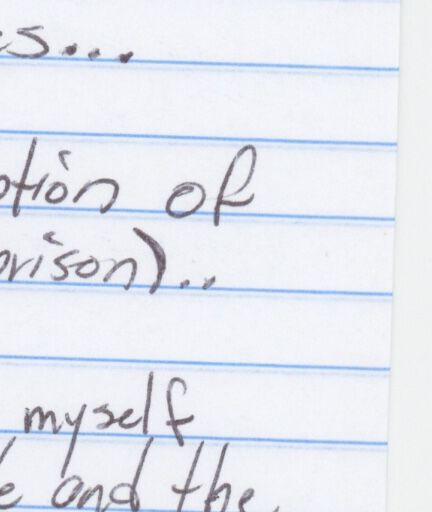 s...
tion of
rison)..
myself
and the